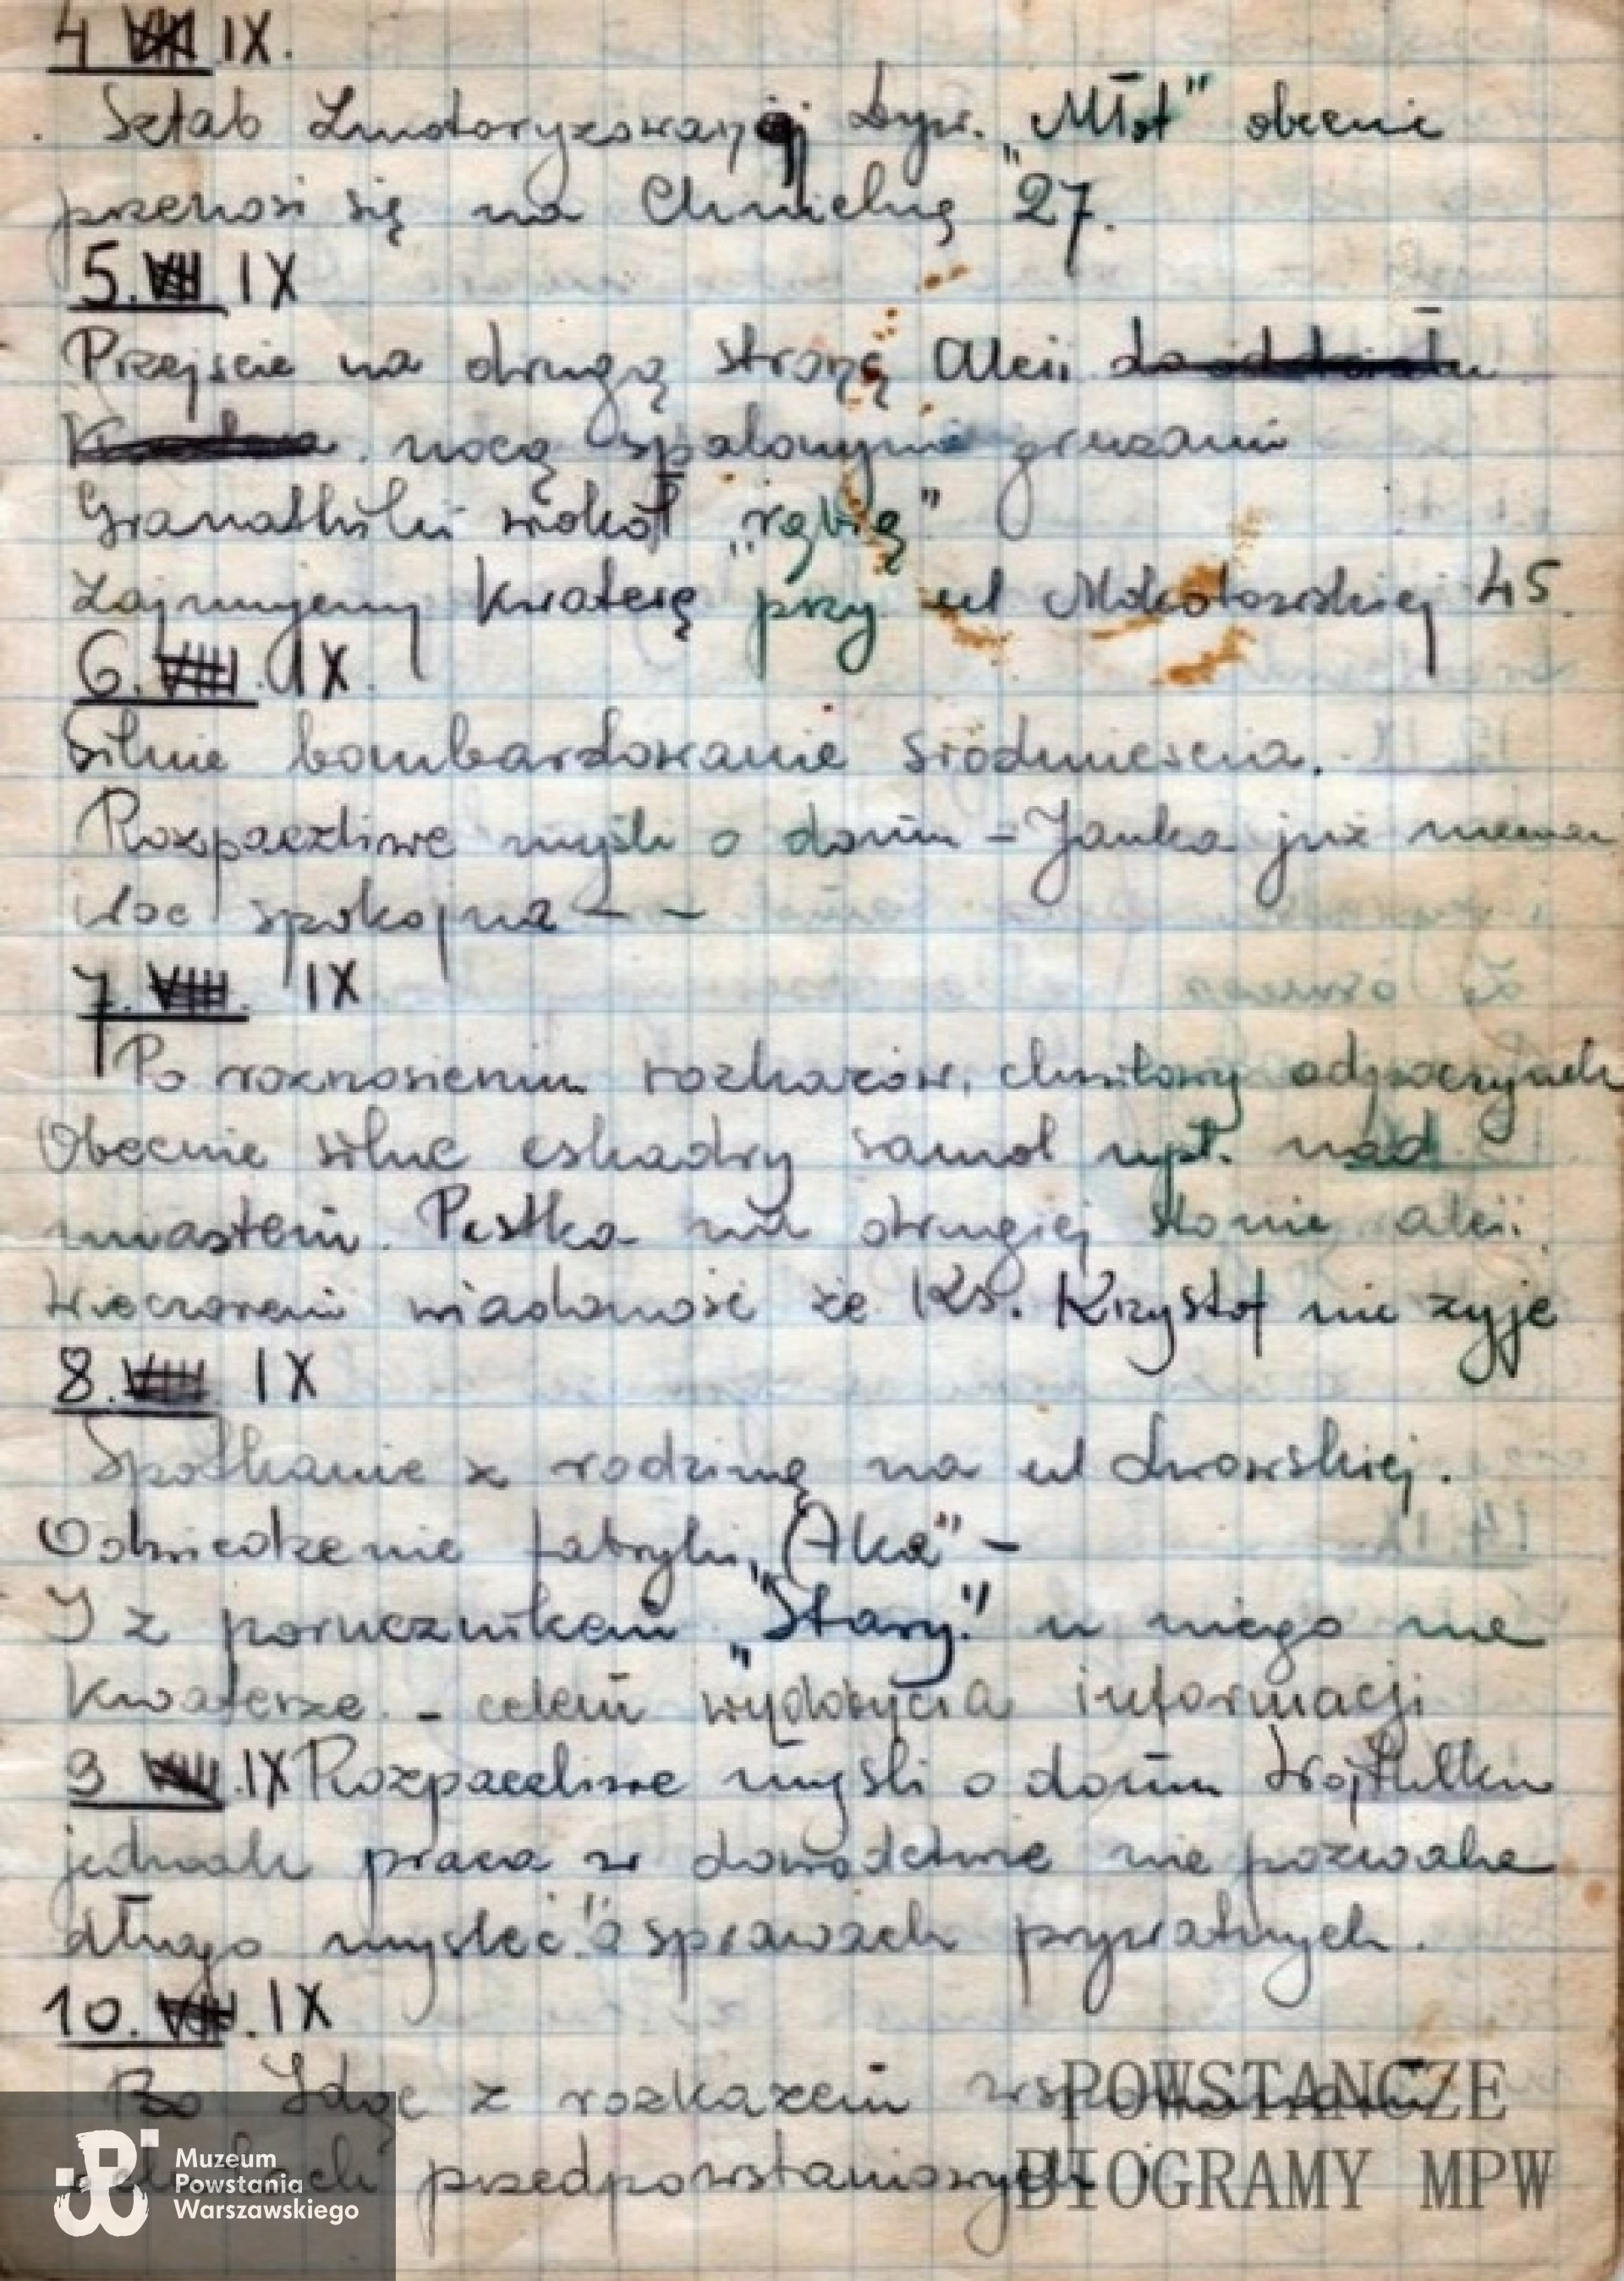 4 VIII IX.
Sztab Zmotoryzowanej Dyw. „Młot" obecnie
przenosi się na Chmielną 27.
5. VIII IX
Przejscie na drugą stronę Aleii do oddziału
nocą spalonymi gruzami
Granatniki wokół „rąbią"
Zajmujemy kwaterę przy ul Mokotowskiej 45.
6. VIII. IX.
Silne bombardowanie śródmieścia.
Rozpaczliwe myśli o domu - Janka już niema
Noc spokojna - -
7. VIII. IX
Po roznosieniu rozkazów, chwilowy odpoczynek
Obecnie silne eskadry samol npl. nad
miastem. Pestka na drugiej stonie aleii.
Wieczorem wiadomość że Ks. Krzystof nie żyje
8. VIII IX
Spotkanie z rodziną na ul Lwowskiej.
Odwiedzenie fabryki „Aka" -
I z porucznikem „Stary" u niego na
kwaterze - celem wydobycia informacji
9 VIII. IX Rozpaczliwe myśli o domu Wojtulku
jednak praca w dowództwie nie pozwala
długo mysleć o sprawach prywatnych.
10. VIII. IX
Bo Idąc z rozkazem
przedpowstaniowych
POWSTAŃCZE
BIOGRAMY MPW
Muzeum
Powstania
Warszawskiego